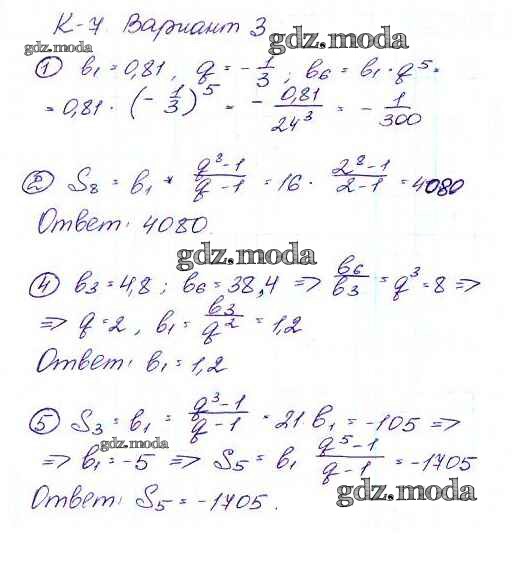 К-7 Вариант 3
gdz.moda
gdz.moda
① b₁ = 0,81, q = -1/3; b₆ = b₁ · q⁵ =
= 0,81 · (-1/3)⁵ = - 0,81/24³ = - 1/300
② S₈ = b₁ * (q⁸-1)/(q-1) = 16 · (2⁸-1)/(2-1) = 4080
Ответ: 4080.
gdz.moda
gdz.moda
④ b₃ = 4,8; b₆ = 38,4 => b₆/b₃ = q³ = 8 =>
=> q = 2, b₁ = b₃/q² = 1,2
Ответ: b₁ = 1,2
gdz.moda
⑤ S₃ = b₁ = (q³-1)/(q-1) = 21 b₁ = -105 =>
gdz.moda
=> b₁ = -5 => S₅ = b₁ (q⁵-1)/(q-1) = -1705
Ответ: S₅ = -1705.
gdz.moda